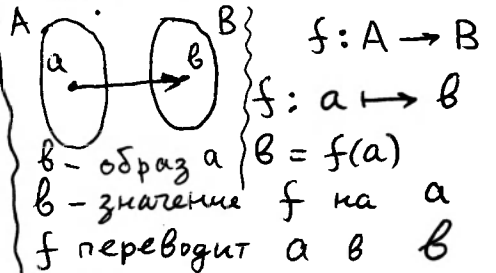 A a в B
f : A → B
f : a ↦ в
в - образ a
в = f(a)
в - значение f на a
f переводит a в в